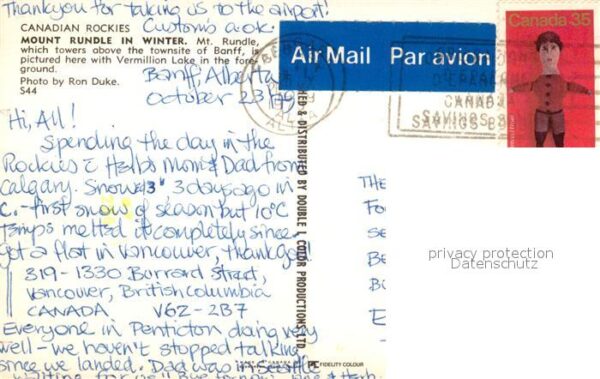 Thank you for taking us to the airport!
Customs a-ok.
CANADIAN ROCKIES
MOUNT RUNDLE IN WINTER. Mt. Rundle,
which towers above the townsite of Banff, is
pictured here with Vermillion Lake in the fore-
ground.
Photo by Ron Duke.
S44
Banff, Alberta
October 23/79
Hi, All!
Spending the day in the
Rockies c̄ Herb's Mom & Dad from
Calgary. Snowed 3" 3 days ago in
C. - first snow of season but 10°C
temps melted it completely since.
Got a flat in Vancouver, thank god!
319 - 1330 Burrard Street,
Vancouver, British Columbia
CANADA V6Z-2B7
Everyone in Penticton doing very
well - we haven't stopped talking
since we landed. Dad was in Seattle
waiting for us! Bye for now, & Herb
& DISTRIBUTED BY DOUBLE L COLOR PRODUCTIONS LTD.
FIDELITY COLOUR
Air Mail Par avion
Canada 35
CANADA
SAVINGS
THE
Fo
SE
BE
B
E
privacy protection
Datenschutz